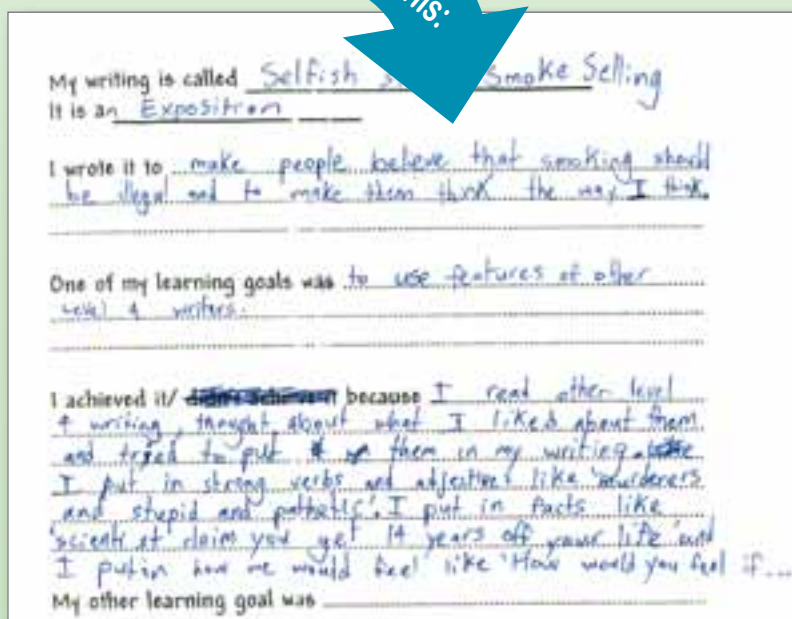 his:
My writing is called Selfish Smoke Selling
It is an Exposition
I wrote it to make people believe that smoking should
be illegal and to make them think the way I think.
One of my learning goals was to use features of other
Level 4 writers.
I achieved it/ didn't achieve it because I read other level
4 writing, thought about what I liked about them
and tried to put them in my writing.
I put in strong verbs and adjectives like 'murderers
and stupid and pathetic'. I put in facts like
'scientist claim you get 14 years off your life' and
I put in how we would feel like 'How would you feel if....
My other learning goal was